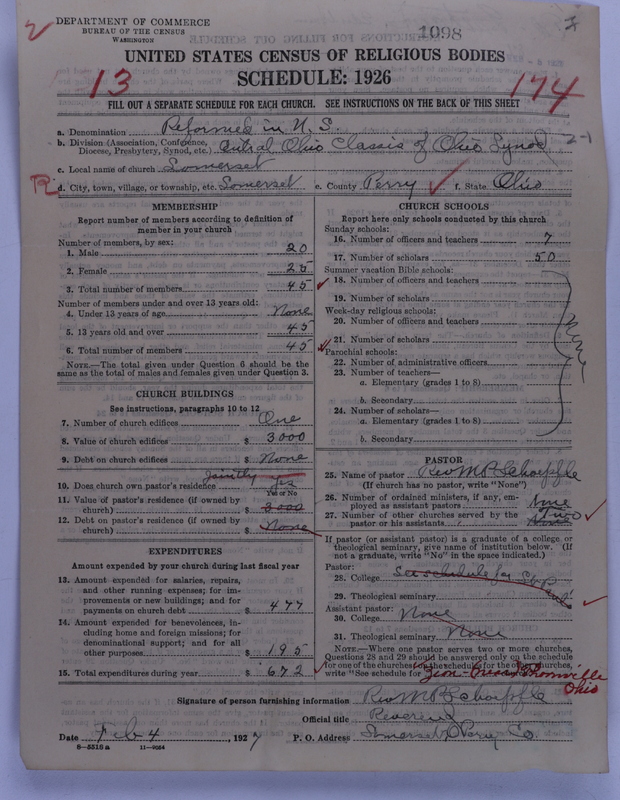 DEPARTMENT OF COMMERCE
BUREAU OF THE CENSUS
WASHINGTON
1098
UNITED STATES CENSUS OF RELIGIOUS BODIES
SCHEDULE: 1926
13
174
FILL OUT A SEPARATE SCHEDULE FOR EACH CHURCH. SEE INSTRUCTIONS ON THE BACK OF THIS SHEET
a. Denomination Reformed in U.S.
b. Division (Association, Conference, Diocese, Presbytery, Synod, etc.) Central Ohio Classis of Ohio Synod
2-1
c. Local name of church Somerset
d. City, town, village, or township, etc. Somerset e. County Perry f. State Ohio
MEMBERSHIP
Report number of members according to definition of
member in your church
Number of members, by sex:
1. Male 20
2. Female 25
3. Total number of members 45
Number of members under and over 13 years old:
4. Under 13 years of age None
5. 13 years old and over 45
6. Total number of members 45
NOTE.—The total given under Question 6 should be the
same as the total of males and females given under Question 3.
CHURCH BUILDINGS
See instructions, paragraphs 10 to 12
7. Number of church edifices One
8. Value of church edifices $ 3000
9. Debt on church edifices $ None
Jointly
10. Does church own pastor's residence yes
Yes or No
11. Value of pastor's residence (if owned by
church) $ 3000
12. Debt on pastor's residence (if owned by
church) $ None
EXPENDITURES
Amount expended by your church during last fiscal year
13. Amount expended for salaries, repairs,
and other running expenses; for im-
provements or new buildings; and for
payments on church debt $ 477
14. Amount expended for benevolences, in-
cluding home and foreign missions; for
denominational support; and for all
other purposes $ 195
15. Total expenditures during year $ 672
CHURCH SCHOOLS
Report here only schools conducted by this church
Sunday schools:
16. Number of officers and teachers 7
17. Number of scholars 50
Summer vacation Bible schools:
18. Number of officers and teachers
19. Number of scholars
Week-day religious schools:
20. Number of officers and teachers
21. Number of scholars
Parochial schools:
22. Number of administrative officers
23. Number of teachers—
a. Elementary (grades 1 to 8)
b. Secondary
24. Number of scholars—
a. Elementary (grades 1 to 8)
b. Secondary
None
PASTOR
25. Name of pastor Rev M P Schoepfle
(If church has no pastor, write "None")
26. Number of ordained ministers, if any, em-
ployed as assistant pastors None
27. Number of other churches served by the
pastor or his assistants Two
If pastor (or assistant pastor) is a graduate of a college or
theological seminary, give name of institution below. (If
not a graduate, write "No" in the space indicated.)
Pastor:
28. College See schedule for
29. Theological seminary
Assistant pastor:
30. College None
31. Theological seminary None
NOTE.—Where one pastor serves two or more churches,
Questions 28 and 29 should be answered only on the schedule
for one of the churches; on the schedule for the other churches,
write "See schedule for
Thornville
Ohio
Signature of person furnishing information Rev M P Schoepfle
Official title Reverend
Date Feb 4, 1927 P. O. Address Somerset, Perry Co.
8—5516a 11—9064